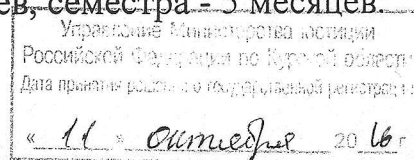 ев, семестра - 5 месяцев.
Управление Министерства юстиции
Российской Федерации по Курской области
Дата принятия решения о государственной регистрации
« 11 » октября 20 16 г